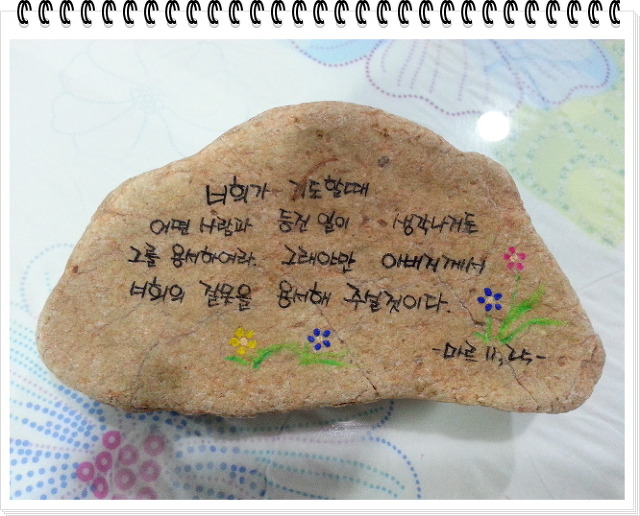 너희가 기도할때
어떤 사람과 등진 일이 생각나거든
그를 용서하여라. 그래야만 아버지께서
너희의 잘못을 용서해 주실것이다.
-마르 11,25-